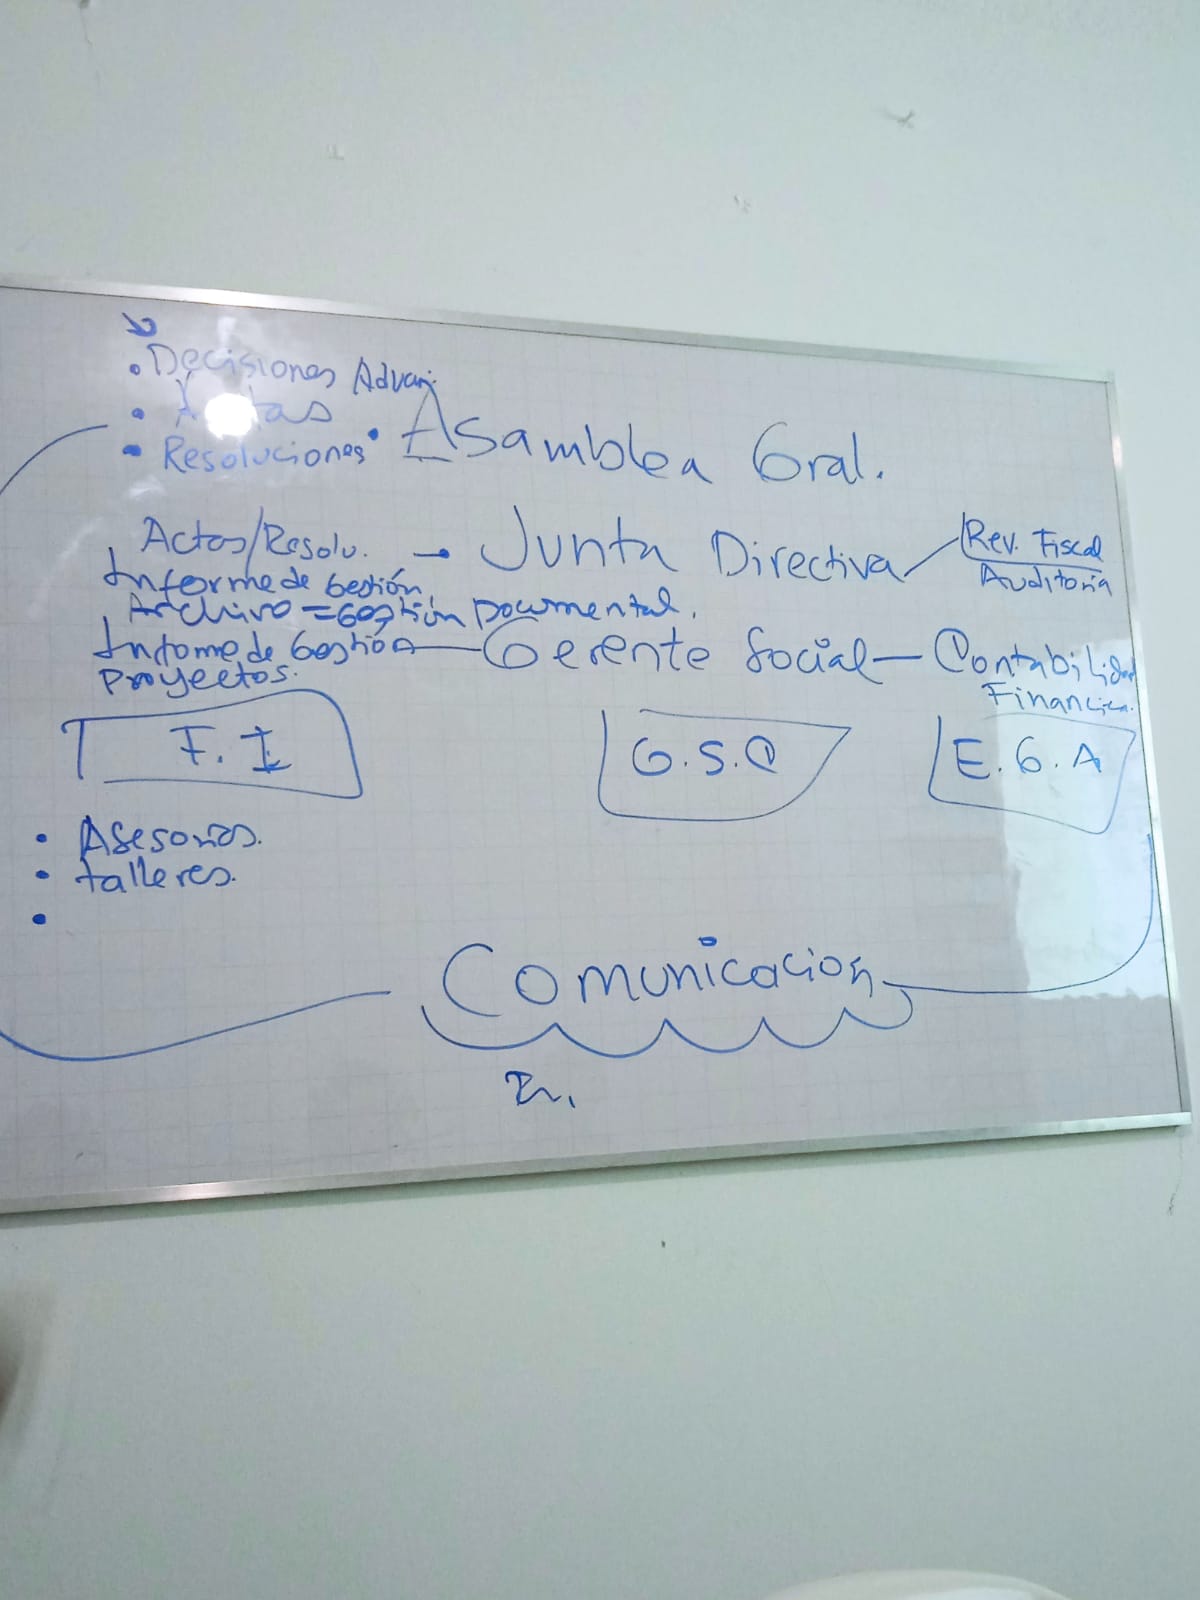 • Decisiones
• Actas
• Resoluciones
• Asamblea Gral.
Actas/Resolu. - Junta Directiva
Rev. Fiscal
Auditoria
Informe de Gestión,
Archivo = Gestión Documental.
Informe de Gestión - Gerente Social - Contabilidad
Financiera.
Proyectos.
F. I
G. S. C
E. G. A
• Asesorias.
• talleres.
•
Comunicacion